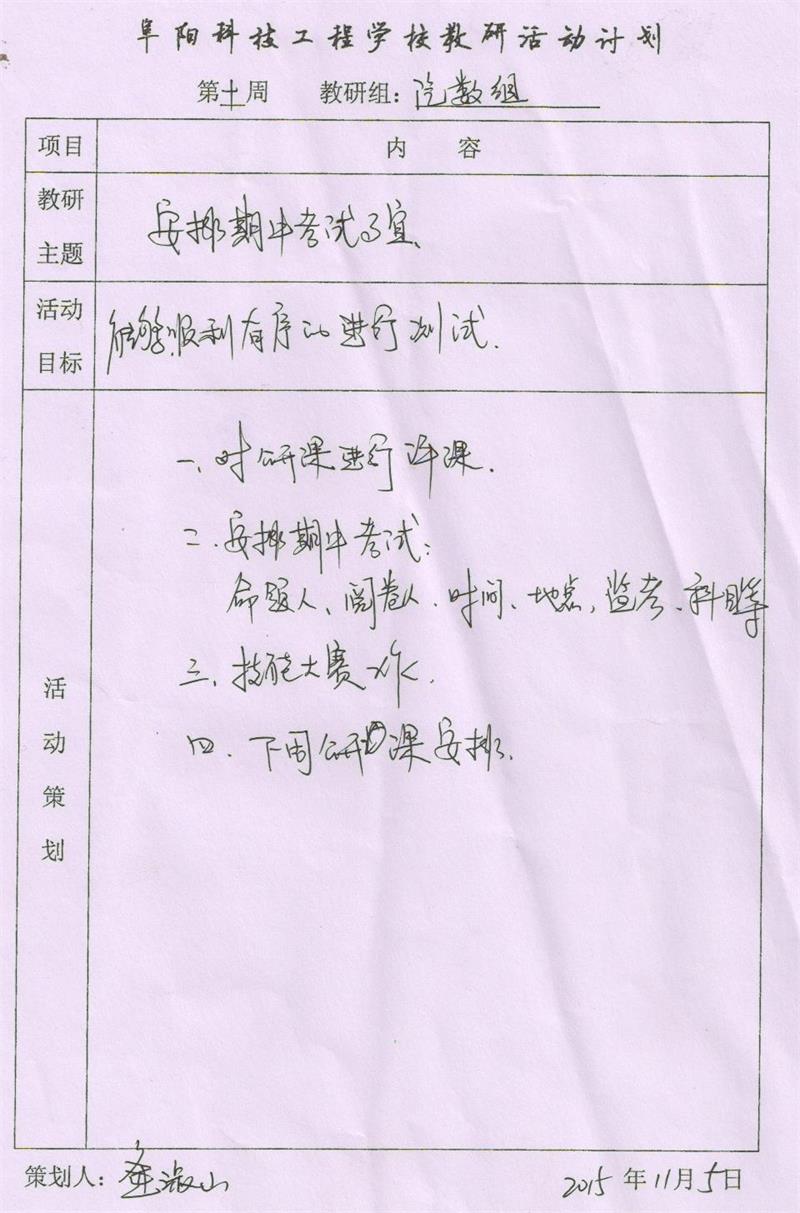 阜阳科技工程学校教研活动计划
第十周 教研组：汽数组
项目 内 容
教研主题 安排期中考试事宜.
活动目标 能够顺利有序的进行测试.
活动策划
一、对公开课进行评课.
二.安排期中考试：
命题人、阅卷人.时间、地点、监考、科目等
三、技能大赛工作.
四.下周公开课安排.
策划人：淑山 2015年11月5日